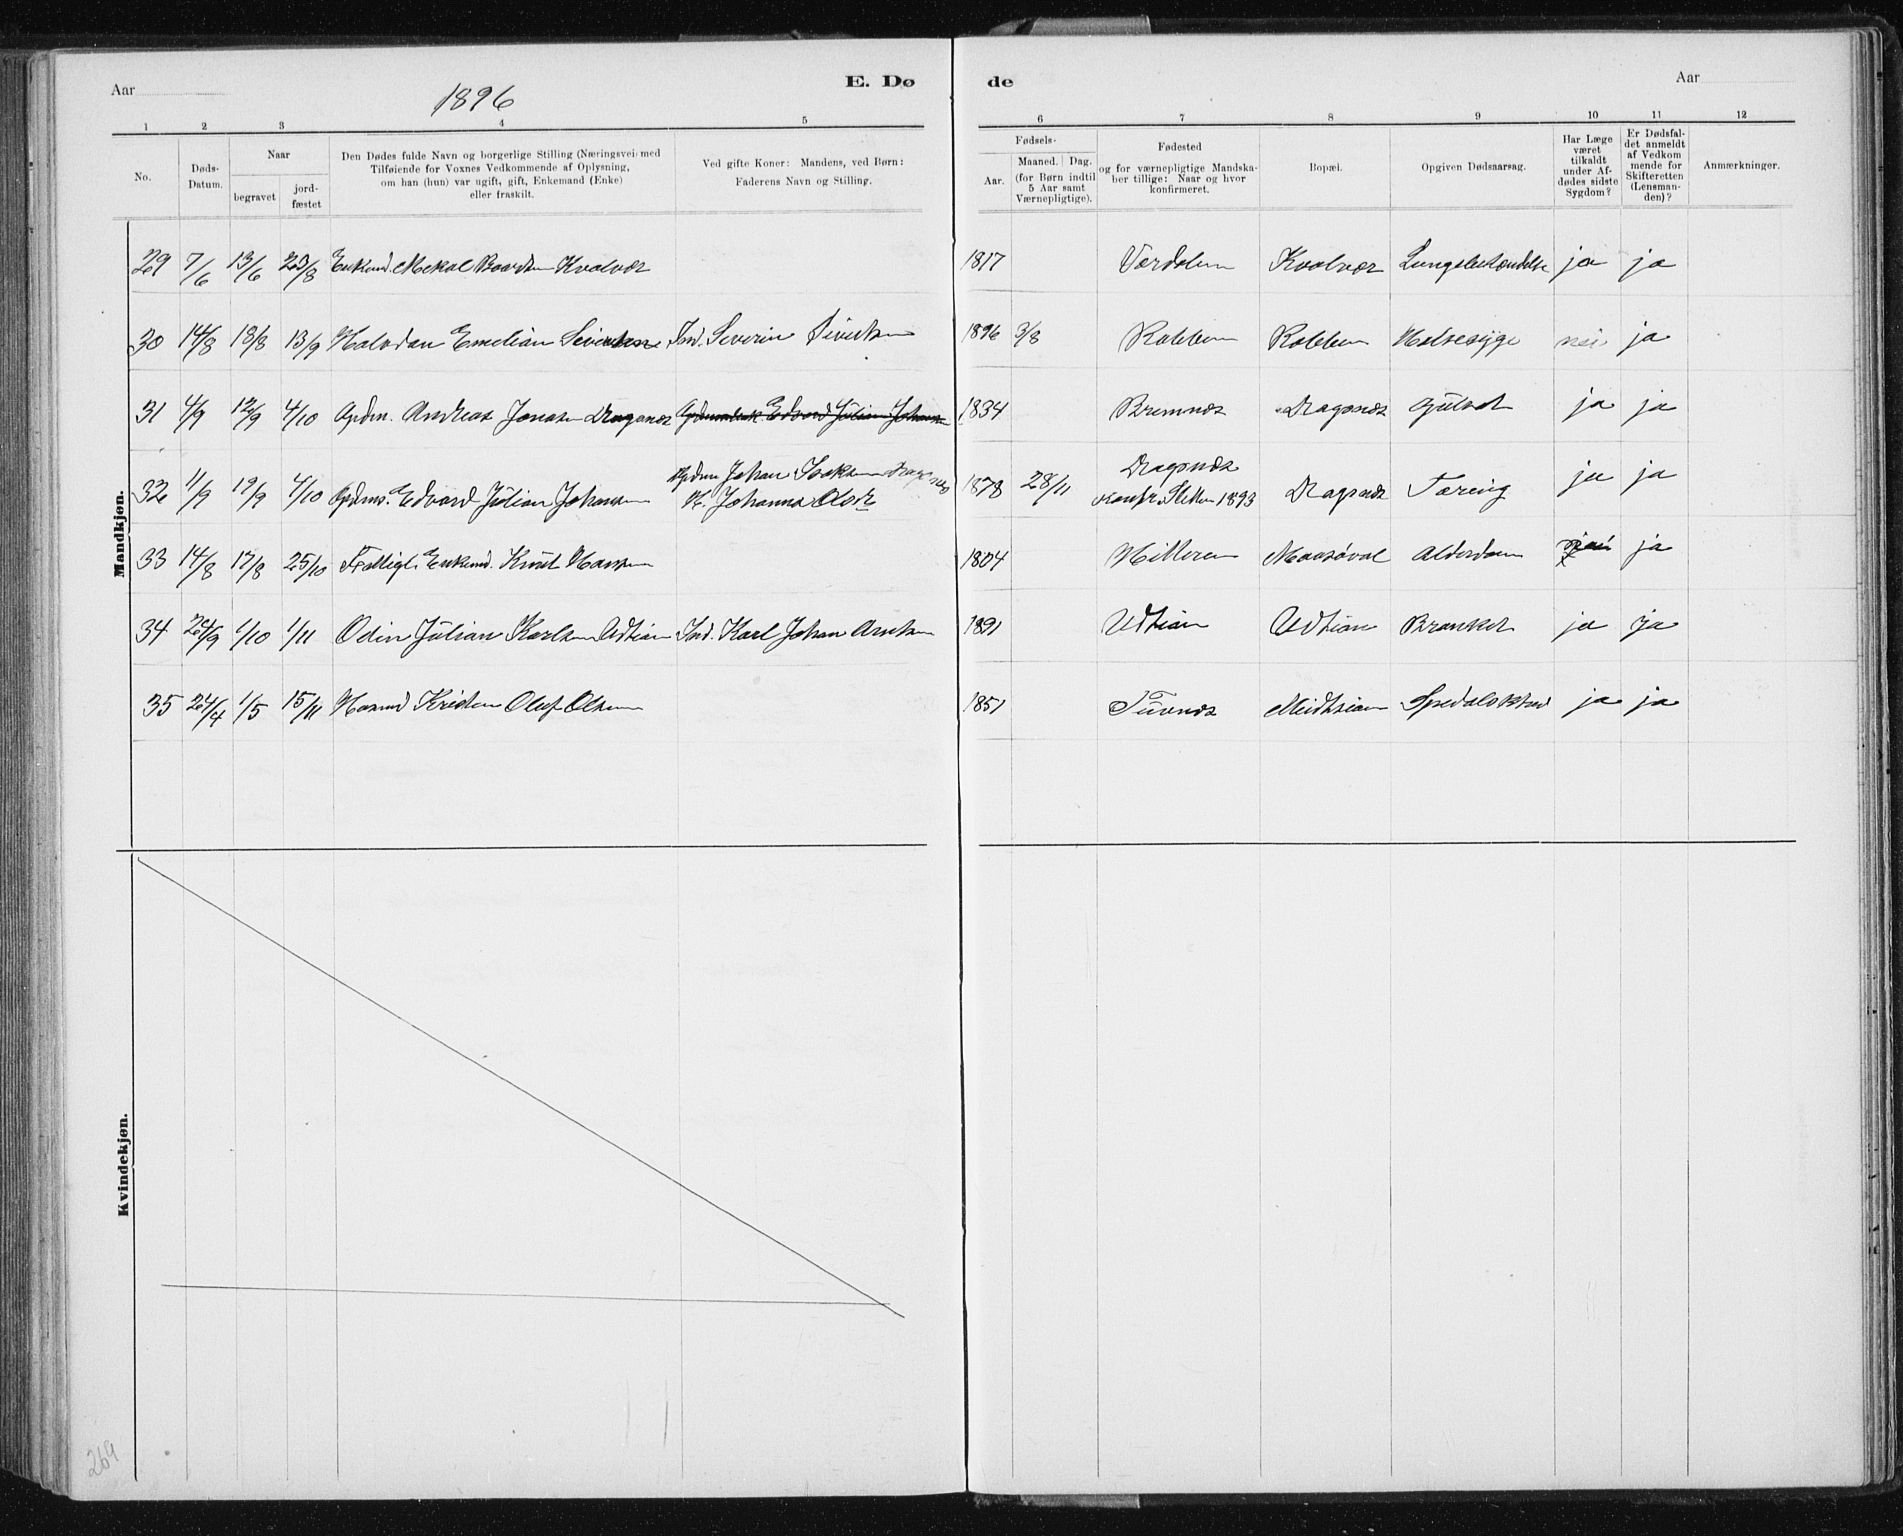 Aar
1896
E. Dø
de
Aar
1 2 3 4 5 6 7 8 9 10 11 12
No.
Døds-
Datum.
Naar
begravet
jord-
fæstet
Den Dødes fulde Navn og borgerlige Stilling (Næringsvei) med
Tilføiende for Voxnes Vedkommende af Oplysning,
om han (hun) var ugift, gift, Enkemand (Enke)
eller fraskilt.
Ved gifte Koner: Mandens, ved Børn:
Faderens Navn og Stilling.
Fødsels-
Aar.
Maaned. Dag.
(for Børn indtil
5 Aar samt
Værnepligtige).
Fødested
og for værnepligtige Mandska-
ber tillige: Naar og hvor
konfirmeret.
Bopæl.
Opgiven Dødsaarsag.
Har Læge
været
tilkaldt
under Af-
dødes sidste
Sygdom?
Er Dødsfal-
det anmeldt
af Vedkom
mende for
Skifteretten
(Lensman-
den)?
Anmærkninger.
Mandkjøn.
29 7/6 13/6 23/8 Enkemd. Mekal Kvalvær 1817 Værdalen Kvalvær Lungebetændelse ja ja
30 14/8 18/8 13/9 Halvdan Emelian Sivertsen Ind. Severin Sivertsen 1896 3/8 Kobben Kobben Halsesyge nei ja
31 4/9 12/9 4/10 Gpdm. Andreas Jonasen Dragsnes Edvard Julian Johansen 1834 Bremnes Dragsnes Gulsot ja ja
32 11/9 19/9 4/10 Gpdms. Edvard Julian Johansen Gpdm Johan Isaksen Dragsnes
H. Johanna Olsdr 1878 28/11 Dragsnes
konfr. Sletten 1893 Dragsnes Tæring ja ja
33 14/8 17/8 25/10 Fattigl. Enkemd. Knut Hansen 1804 Hitteren Maasøval Alderdom ja
34 26/9 1/10 1/11 Odin Julian Karlsen Udtian Ind. Karl Johan Arntsen 1891 Udtian Udtian Bronkit ja ja
35 24/4 1/5 15/11 Husmd Kristen Oluf Olsen 1851 Tuvnes Midtsian Spedalskhed ja ja
Kvindekjøn.
269